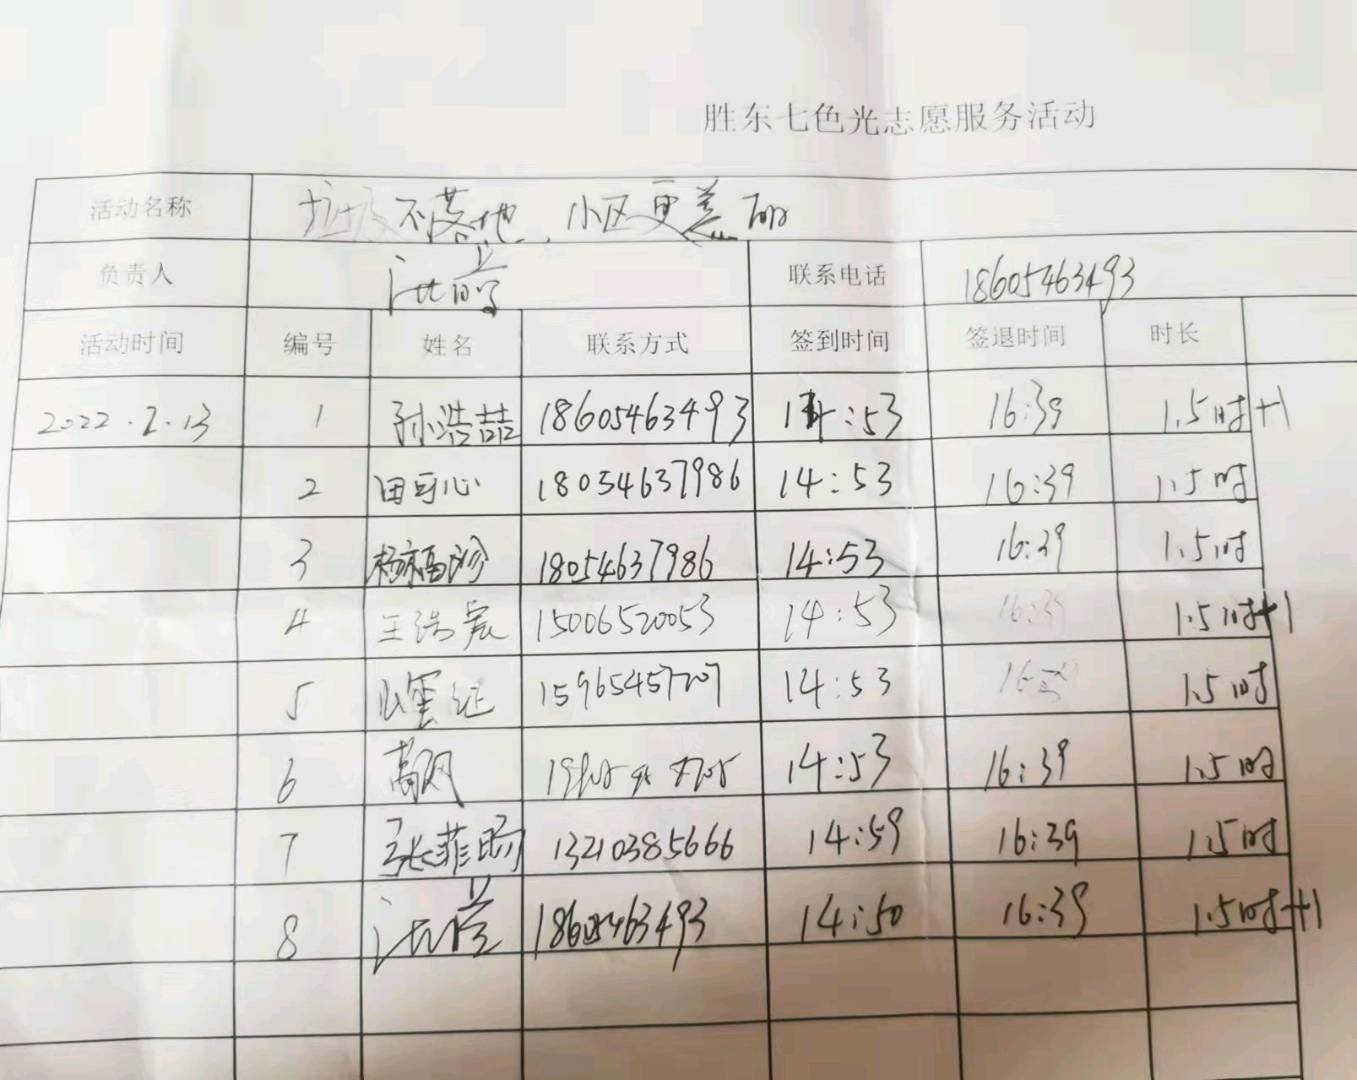 胜东七色光志愿服务活动
活动名称 垃圾不落地，小区更美丽
负责人 联系电话 18605463493
活动时间 编号 姓名 联系方式 签到时间 签退时间 时长
2022.2.13 1 孙浩喆 18605463493 14:53 16:39 1.5时+1
2 田可心 18054637986 14:53 16:39 1.5时
3 18054637986 14:53 16:39 1.5时
4 王浩宸 15006520053 14:53 16:39 1.5时+1
5 14:53 1.5时
6 14:53 16:39 1.5时
7 张菲 13210385666 14:59 16:39 1.5时
8 18605463493 14:50 16:39 1.5时+1